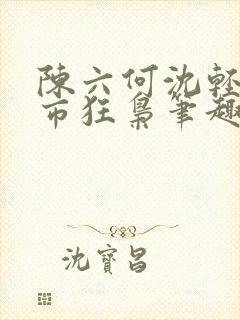 陳六何沈軽
市狂梟筆趣
沈寶昌